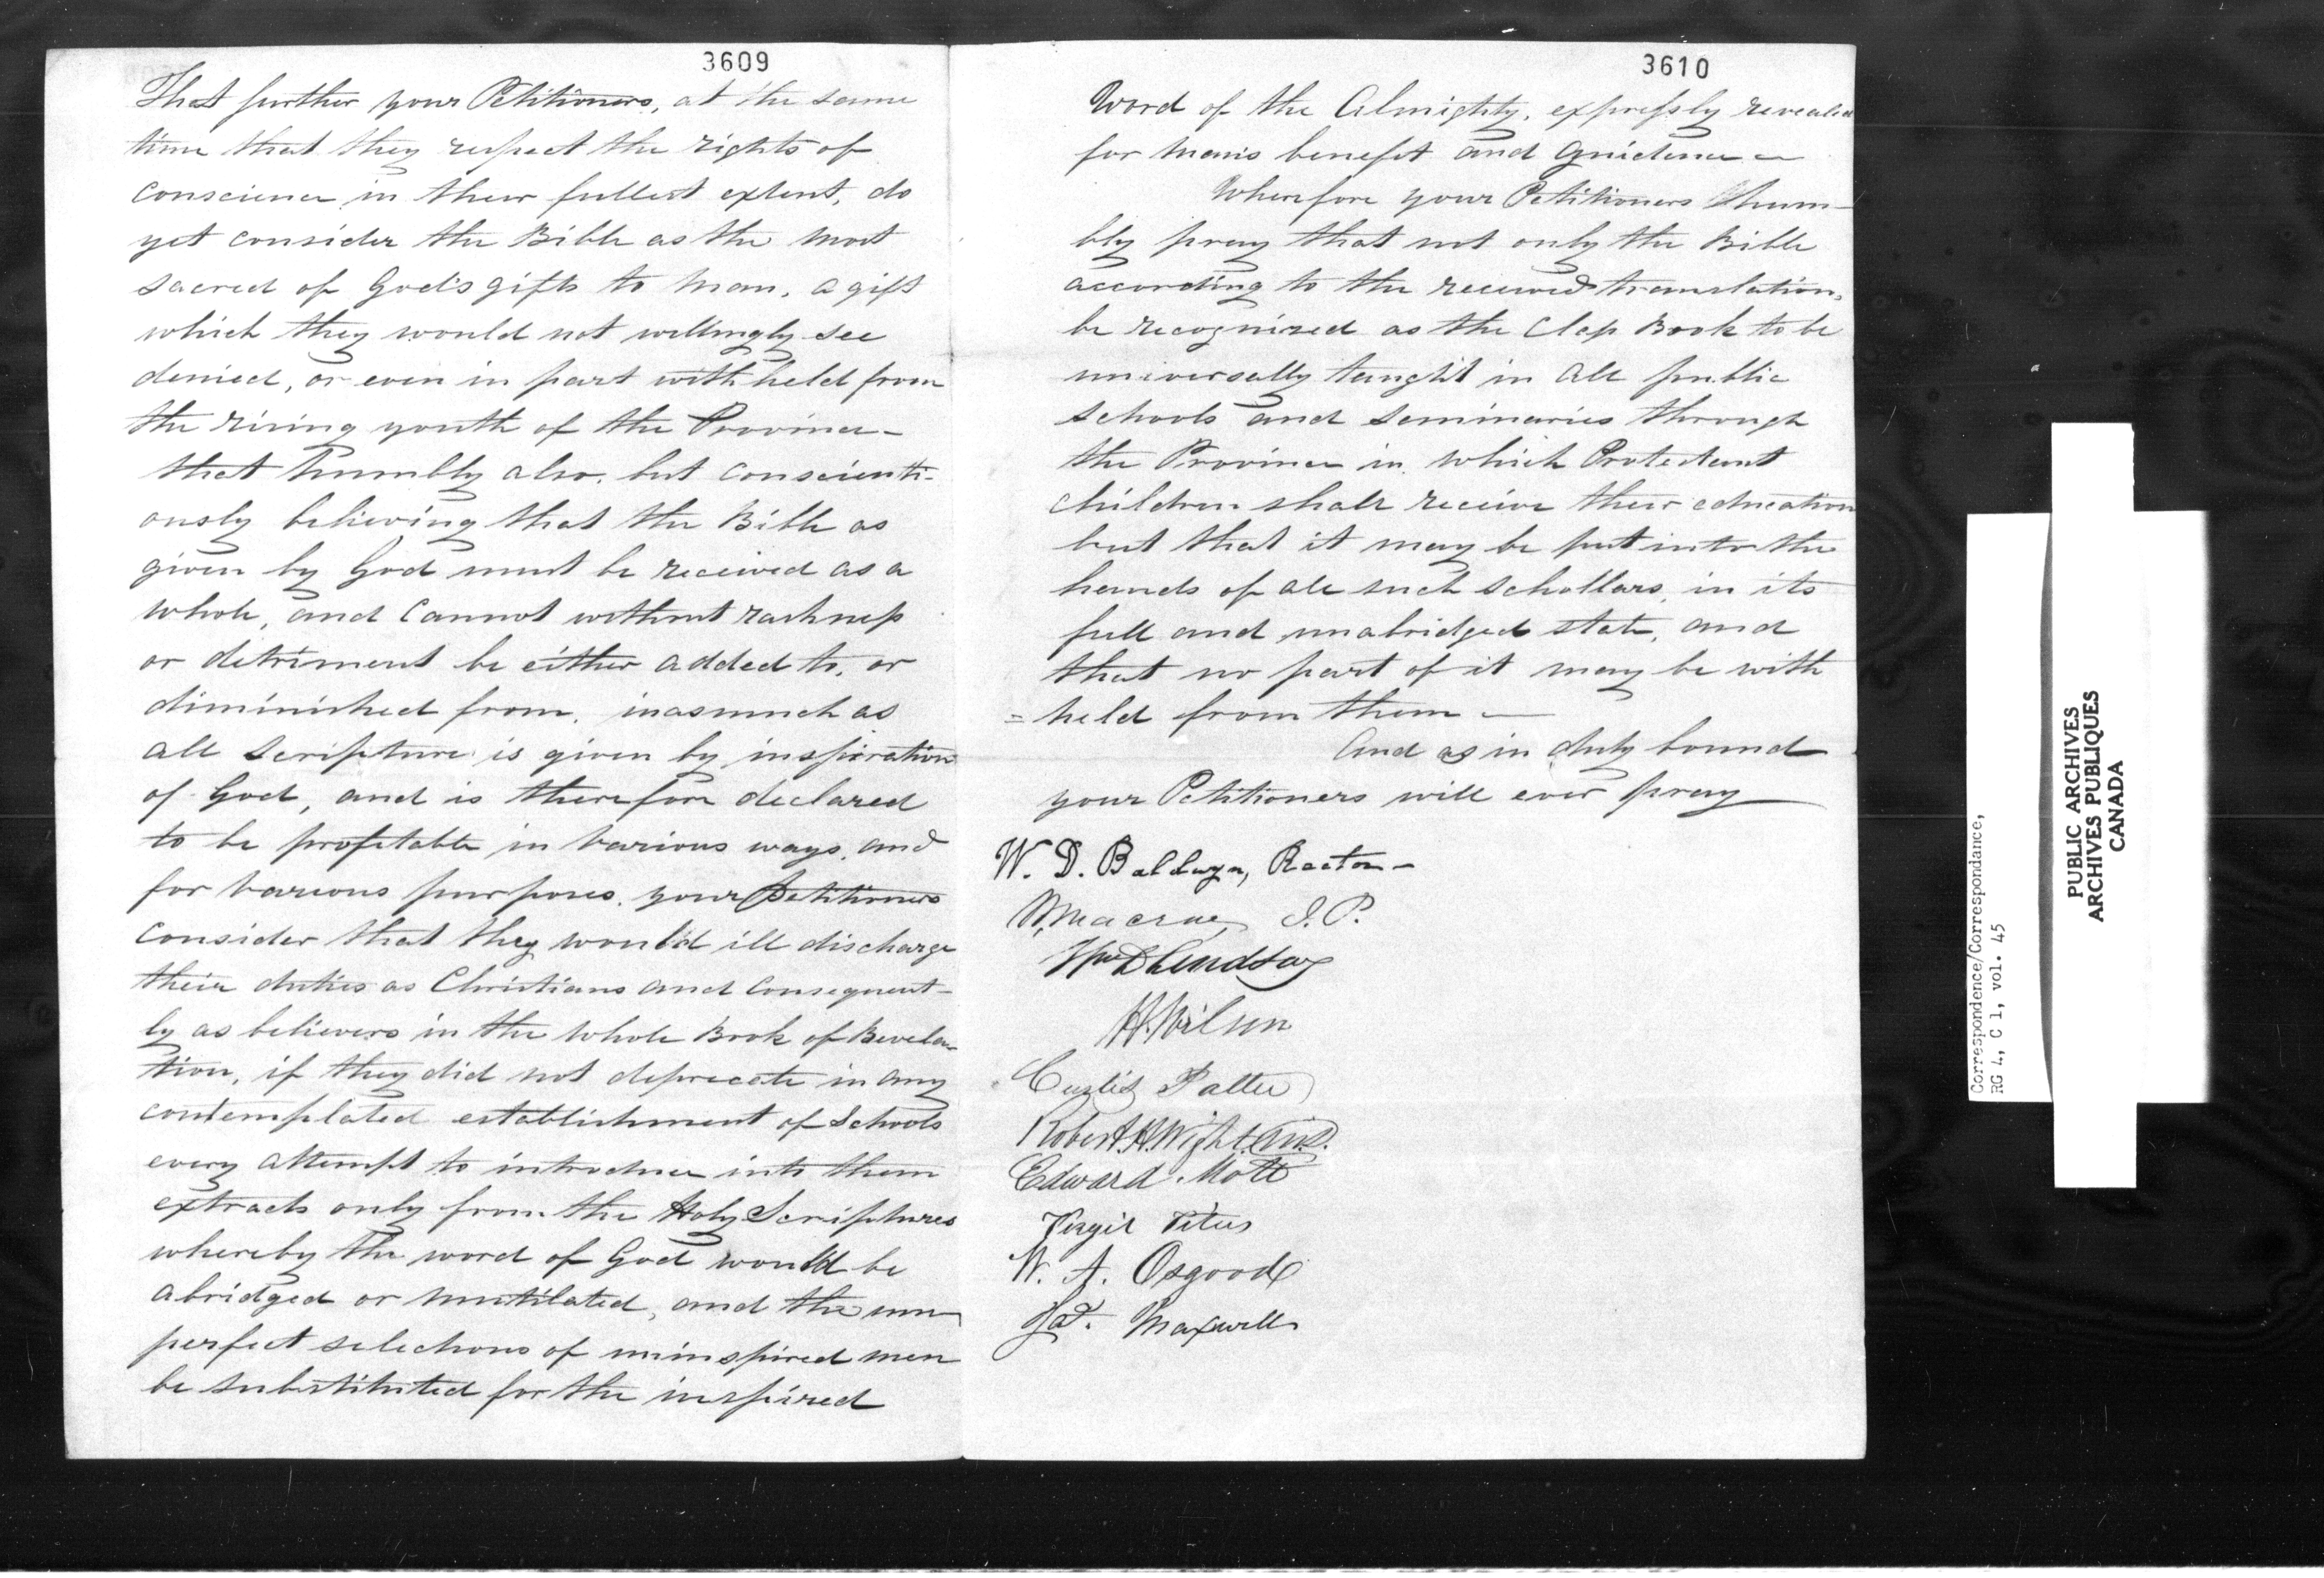 3609
That further your Petitioners, at the same
time that they respect the rights of
conscience in their fullest extent, do
yet consider the Bible as the most
sacred of God's gifts to man, a gift
which they would not willingly see
denied, or even in part withheld from
the rising youth of the Province -
that humbly also, but conscienti-
ously believing that the Bible as
given by God must be received as a
whole, and cannot without rashness
or detriment be either added to, or
diminished from, inasmuch as
all Scripture is given by inspiration
of God, and is therefore declared
to be profitable in various ways, and
for various purposes, your Petitioners
consider that they would ill discharge
their duties as Christians and consequent-
ly as believers in the whole Book of Revela-
tion, if they did not deprecate in any
contemplated establishment of Schools
every attempt to introduce into them
extracts only from the Holy Scriptures
whereby the word of God would be
abridged or mutilated, and the im
perfect selections of uninspired men
be substituted for the inspired
3610
Word of the Almighty, expressly revealed
for man's benefit and guidance -
Wherefore your Petitioners hum-
bly pray that not only the Bible
according to the received translation,
be recognized as the Class Book to be
universally taught in all public
schools and seminaries through
the Province in which Protestant
children shall receive their education
but that it may be put into the
hands of all such schollars, in its
full and unabridged state, and
that no part of it may be with
= held from them -
And as in duty bound
your Petitioners will ever pray
W. D. Baldwyn, Rector -
Macrae, J. P.
Wm D Lindsay
H. Wilson
Curtis
Robert H. Wight
Edward Mott
Virgil Titus
W. A. Osgood
Jas. Maxwell
Correspondence/Correspondance,
RG 4, C 1, vol. 45
PUBLIC ARCHIVES
ARCHIVES PUBLIQUES
CANADA